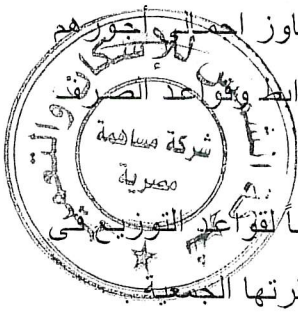 اوز اجمالى أجورهم
ابط وقواعد الصرف
للإسكان والتعمير
شركة مساهمة
مصرية
أ لقواعد التوزيع فى
رتها الجمعية